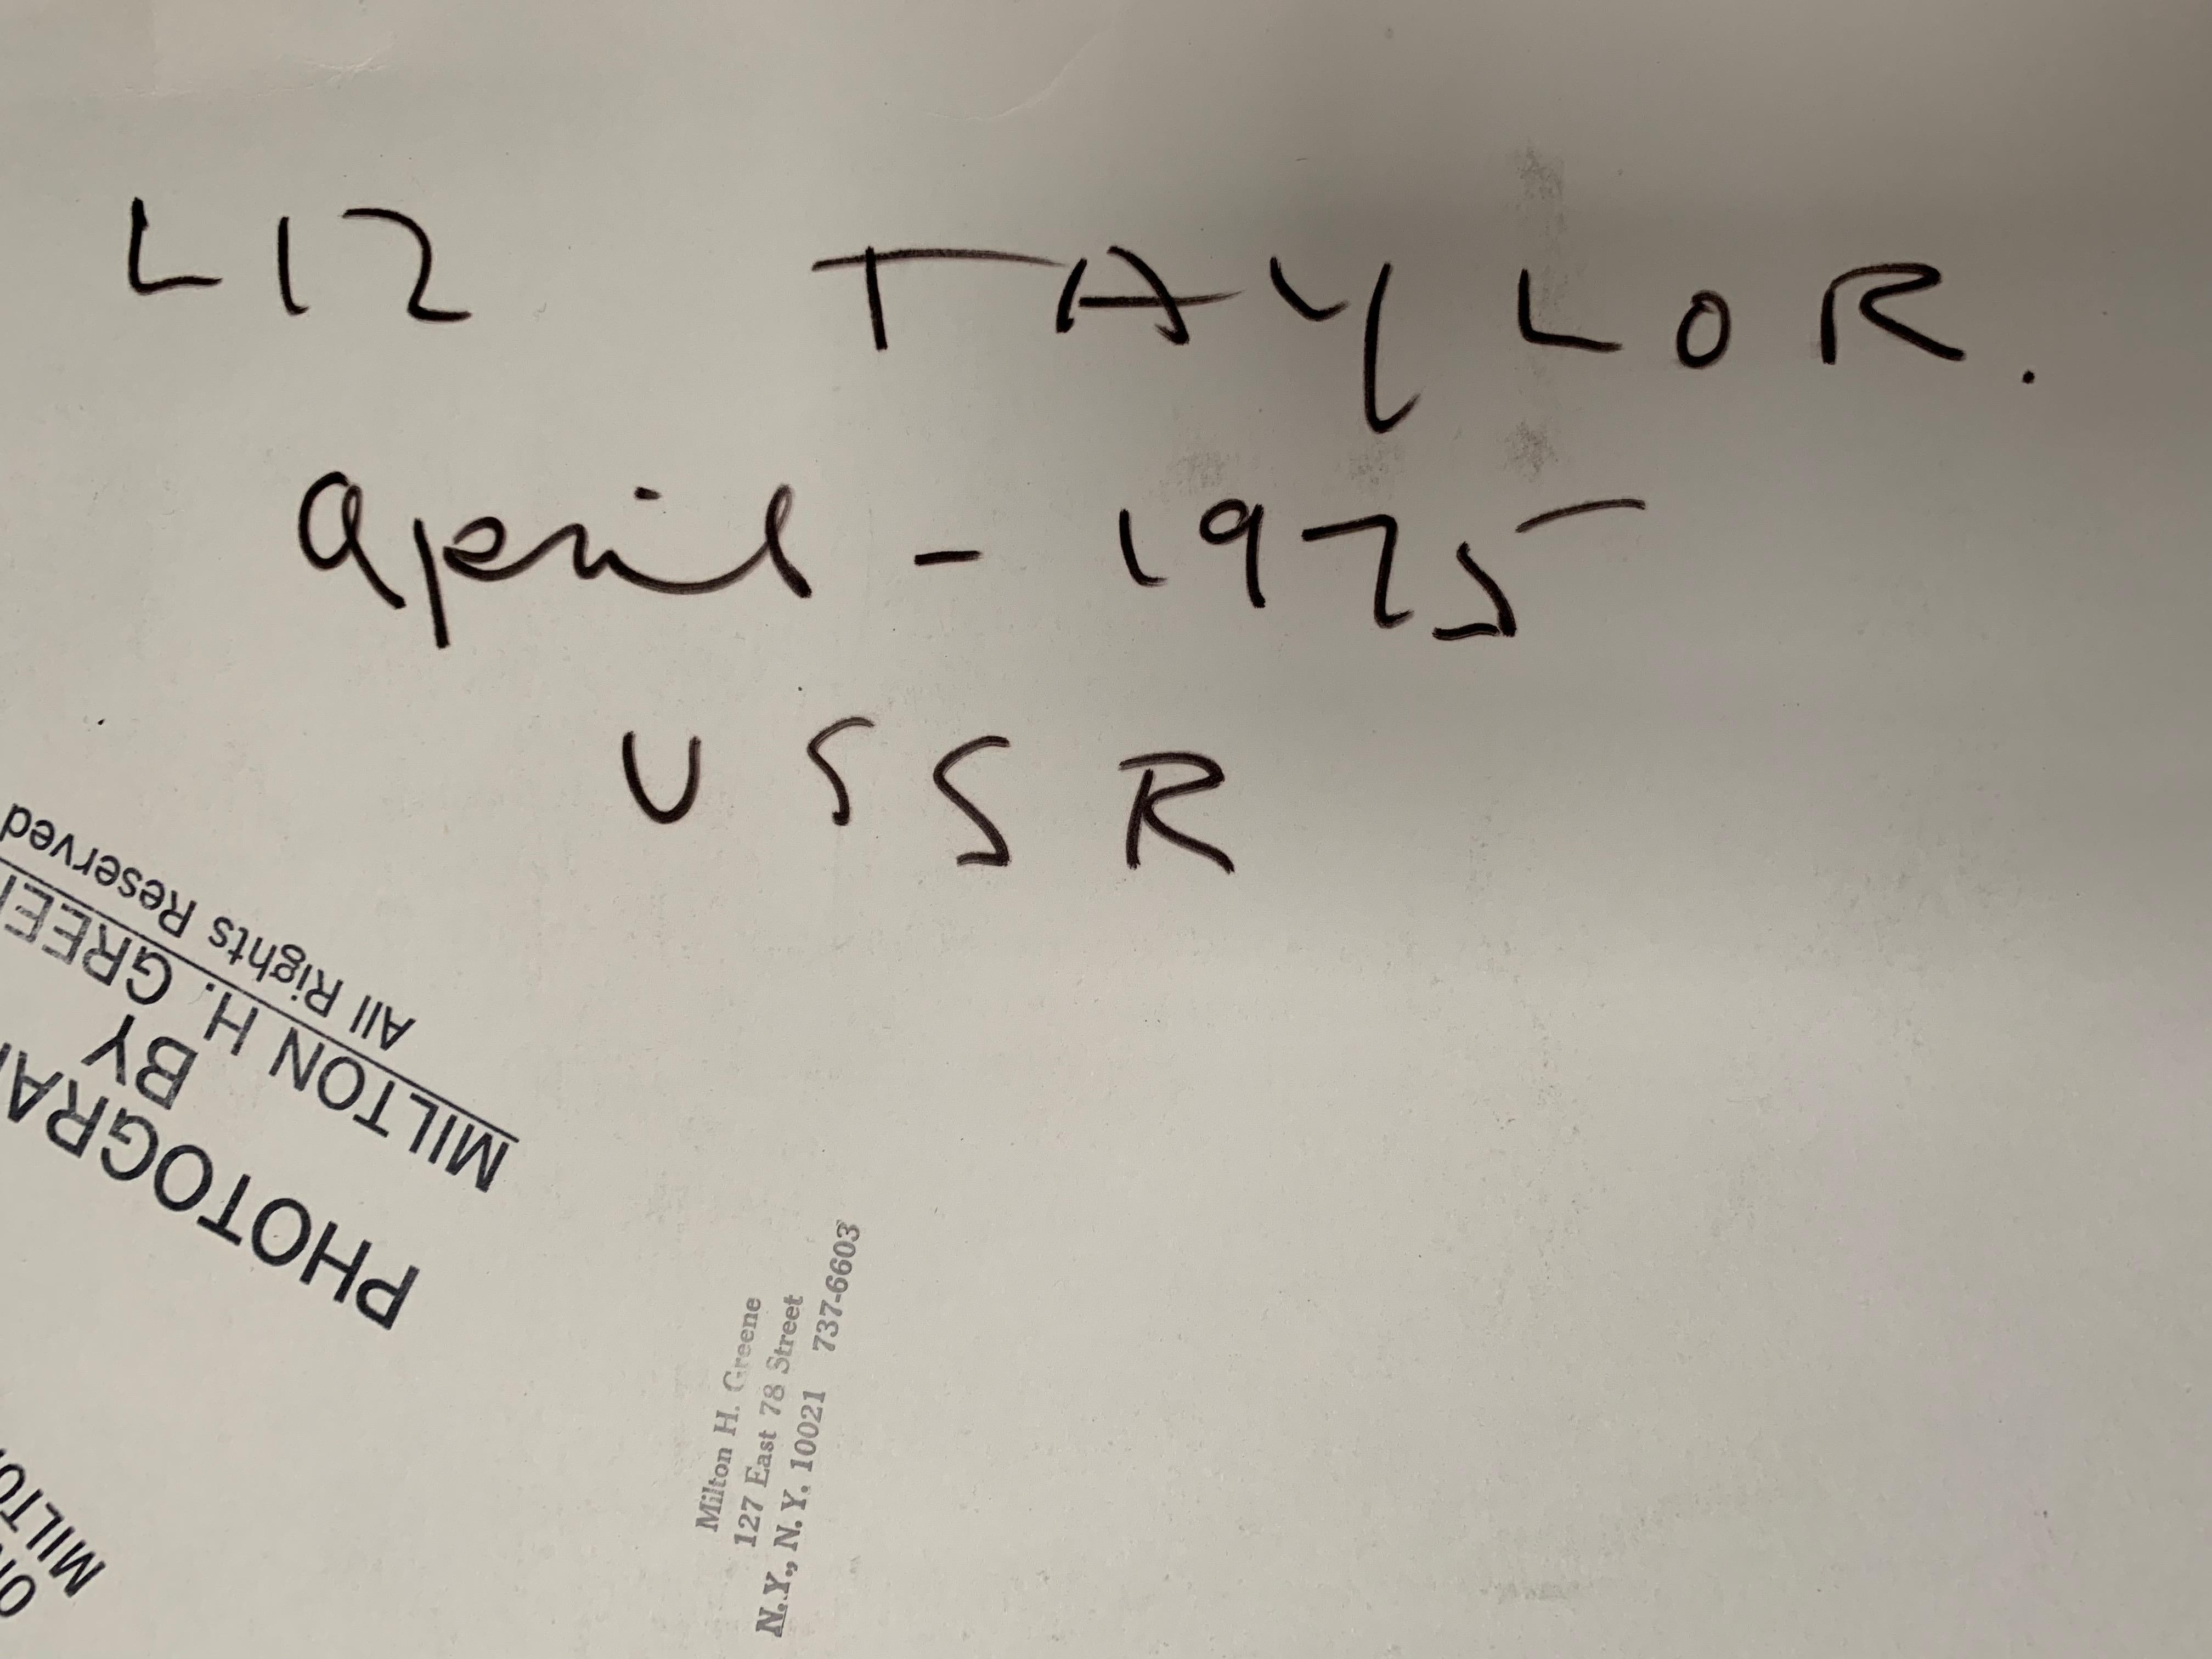 LIZ TAYLOR.
April - 1975
USSR
PHOTOGRA
BY
MILTON H. GREE
All Rights Reserved
Milton H. Greene
127 East 78 Street
N.Y., N.Y. 10021 737-6603
MILTO